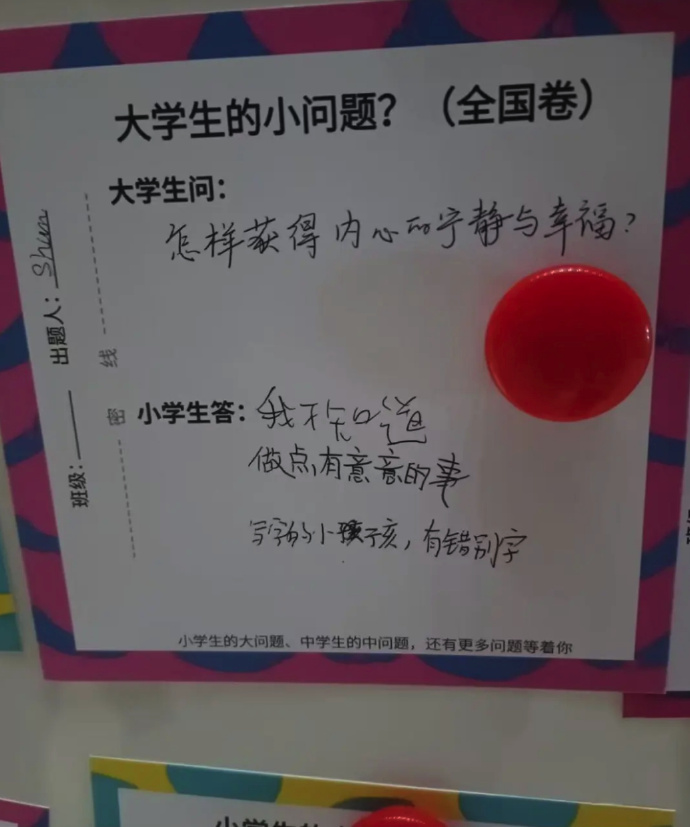 大学生的小问题？（全国卷）
大学生问：
怎样获得内心的宁静与幸福？
出题人：Shum
班级：
线
密
小学生答：我不知道
做点有意意的事
写字的小孩子孩，有错别字
小学生的大问题、中学生的中问题，还有更多问题等着你